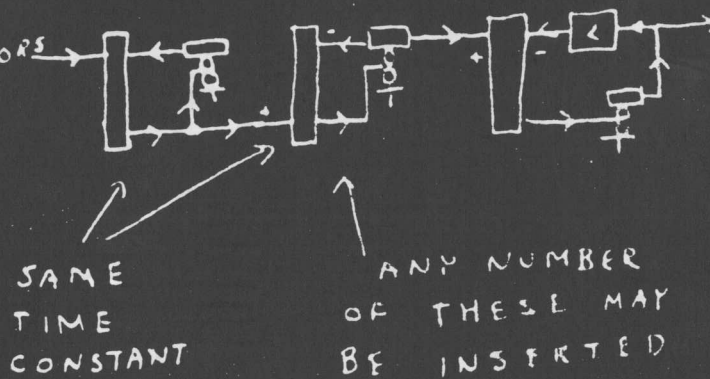 ORS
SAME
TIME
CONSTANT
ANY NUMBER
OF THESE MAY
BE INSERTED